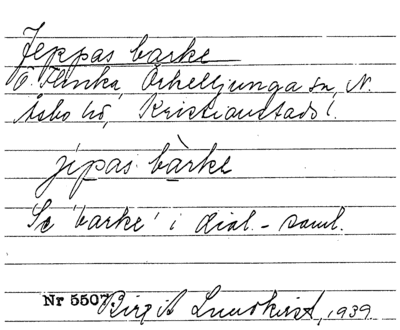 Jeppas barke
Ö. Flinka, Örkelljunga sn, N.
Åsbo hd, Kristianstads l.
jìpas bàrke
Se 'barke' i dial.-saml.
Nr 5507. Birgit Lundkvist, 1939.